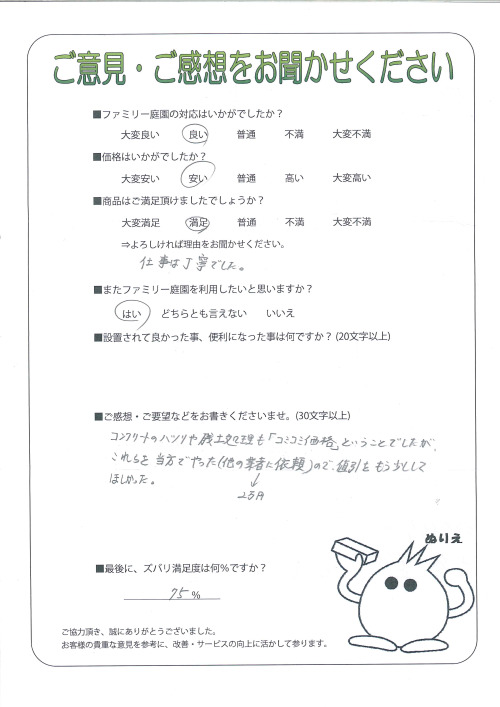 ご意見・ご感想をお聞かせください
■ファミリー庭園の対応はいかがでしたか?
大変良い 良い 普通 不満 大変不満
■価格はいかがでしたか?
大変安い 安い 普通 高い 大変高い
■商品はご満足頂けましたでしょうか?
大変満足 満足 普通 不満 大変不満
⇒よろしければ理由をお聞かせください。
仕事は丁寧でした。
■またファミリー庭園を利用したいと思いますか?
はい どちらとも言えない いいえ
■設置されて良かった事、便利になった事は何ですか? (20文字以上)
■ご感想・ご要望などをお書きくださいませ。(30文字以上)
コンクリートのハツリや残土処理も「コミコミ価格」ということでしたが、
これらを当方でやった(他の業者に依頼)ので、値引をもう少しして
ほしかった。
ぬりえ
■最後に、ズバリ満足度は何%ですか?
75 %
ご協力頂き、誠にありがとうございました。
お客様の貴重な意見を参考に、改善・サービスの向上に活かして参ります。